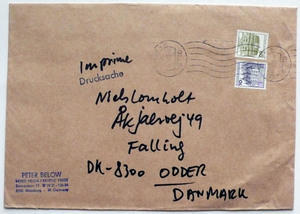 Imprimé
Drucksache
Niels Lomholt
Åkjærvej 49
Falling
DK-8300 ODDER
DANMARK
PETER BELOW